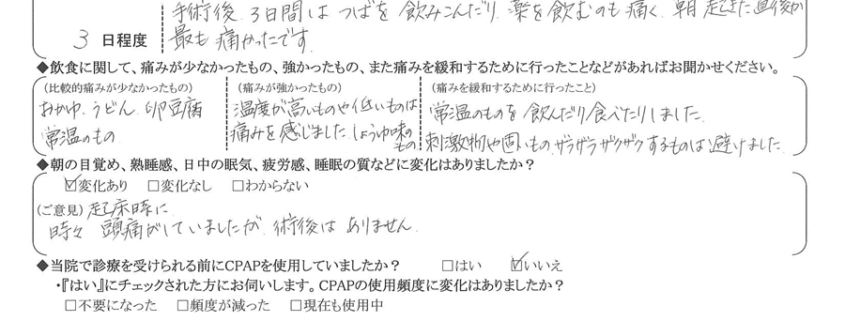 手術後、3日間は つばを 飲みこんだり、薬を飲むのも 痛く、朝 起きた直後が
3 日程度 最も 痛かったです。
◆飲食に関して、痛みが少なかったもの、強かったもの、また痛みを緩和するために行ったことなどがあればお聞かせください。
(比較的痛みが少なかったもの) (痛みが強かったもの) (痛みを緩和するために行ったこと)
おかゆ、うどん、卵豆腐 温度が高いものや低いものは 常温のものを 飲んだり食べたりしました。
常温のもの 痛みを感じました しょうゆ味のもの 刺激物や固いもの、ザラザラザクザクするものは避けました
◆朝の目覚め、熟睡感、日中の眠気、疲労感、睡眠の質などに変化はありましたか?
☑変化あり □変化なし □わからない
(ご意見) 起床時に
時々 頭痛がしていましたが、術後は ありません。
◆当院で診療を受けられる前にCPAPを使用していましたか? □はい ☑いいえ
・『はい』にチェックされた方にお伺いします。CPAPの使用頻度に変化はありましたか?
□不要になった □頻度が減った □現在も使用中